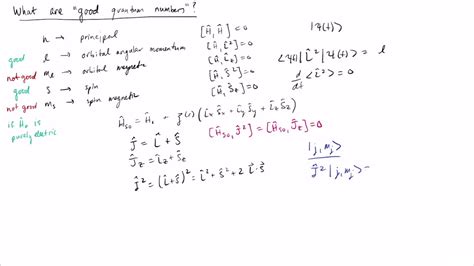 What are "good quantum numbers"?
n → principal
good l → orbital angular momentum
not good m_l → orbital magnetic
good s → spin
not good m_s → spin magnetic
if Ĥ₀ is
purely electric
[Ĥ, Ĥ] = 0
[Ĥ, L̂²] = 0
[Ĥ, L̂_z] = 0
[Ĥ, Ŝ²] = 0
[Ĥ, Ŝ_z] = 0
|Ψ(t)⟩
⟨Ψ(t)| L̂² |Ψ(t)⟩ = l
d/dt ⟨L̂²⟩ = 0
Ĥ_SO = Ĥ₀ + ξ(r) (L̂_x Ŝ_x + L̂_y Ŝ_y + L̂_z Ŝ_z)
[Ĥ_SO, Ĵ²] = [Ĥ_SO, Ĵ_z] = 0
Ĵ = L̂ + Ŝ
Ĵ_z = L̂_z + Ŝ_z
Ĵ² = (L̂ + Ŝ)² = L̂² + Ŝ² + 2 L̂·Ŝ
|j, m_j⟩
Ĵ² |j, m_j⟩ =